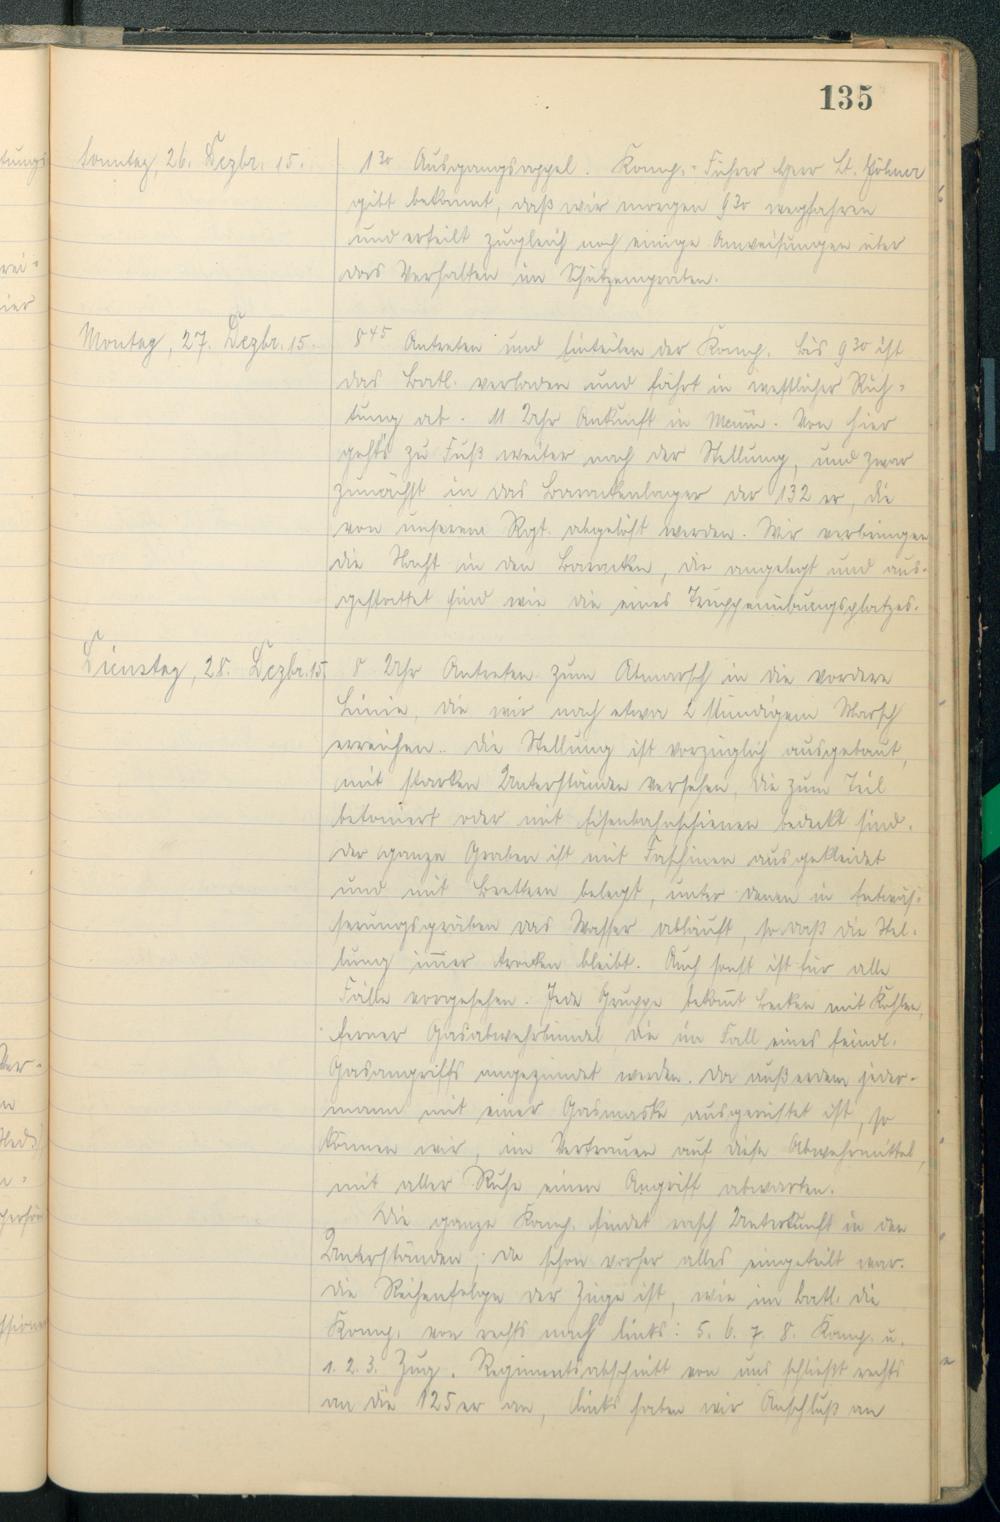 135
Sonntag, 26. Dezbr. 15.
1 30 Ausgangsappel. Komp.-Führer Herr Lt.
gibt bekannt, daß wir morgen 9 30 wegfahren
und erteilt zugleich noch einige Anweisungen über
das Verhalten im Schützengraben.
Montag, 27. Dezbr. 15.
8 45 Antreten und Einteilen der Komp. Bis 9 30 ist
das Batl. verladen und fährt in westlicher Rich-
tung ab. 11 Uhr Ankunft in Menin. Von hier
gehts zu Fuß weiter nach der Stellung, und zwar
zunächst in das Barackenlager der 132 er, die
von unserem Rgt. abgelöst werden. Wir verbringen
die Nacht in den Baracken, die angelegt und aus-
gestattet sind wie die eines Truppenübungsplatzes.
Dienstag, 28. Dezbr. 15.
8 Uhr Antreten zum Abmarsch in die vordere
Linie, die wir nach etwa 2 stündigem Marsch
erreichen. Die Stellung ist vorzüglich ausgebaut,
mit starken Unterständen versehen, die zum Teil
betoniert oder mit Eisenbahnschienen bedeckt sind.
Der ganze Graben ist mit Faschinen ausgekleidet
und mit Brettern belegt, unter denen in Entwäs-
serungsgräben das Wasser abläuft, so daß die Stel-
lung im̅er trocken bleibt. Auch sonst ist für alle
Fälle vorgesehen. Jede Gruppe bekom̅t Becken mit Kohlen,
ferner Gasabwehrbündel, die im Fall eines feindl.
Gasangriffs angezündet werden. Da außerdem jeder-
mann mit einer Gasmaske ausgerüstet ist, so
können wir, im Vertrauen auf diese Abwehrmittel,
mit aller Ruhe einen Angriff abwarten.
Die ganze Komp. findet rasch Unterkunft in den
Unterständen, da schon vorher alles eingeteilt war.
Die Reihenfolge der Züge ist, wie im Batl. die
Komp. von rechts nach links: 5. 6. 7. 8. Komp. u.
1. 2. 3. Zug. Regimentsabschnitt von uns schließt rechts
an die 125 er an, links haben wir Anschluß an